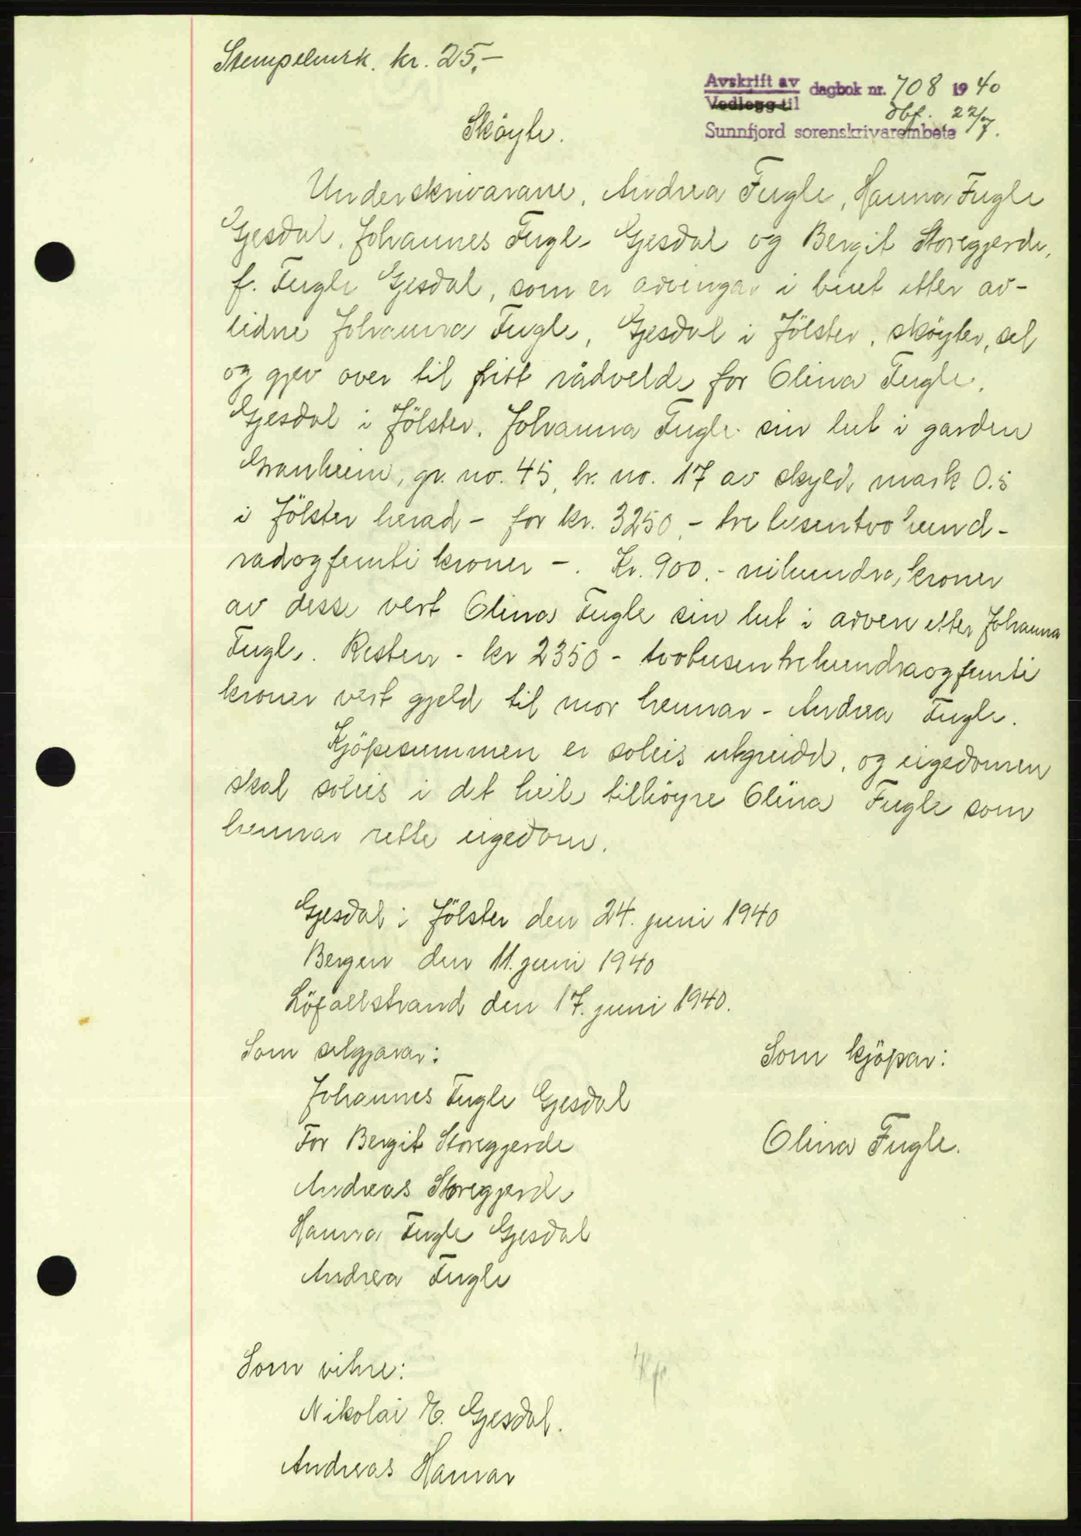 Stempelmrk. kr. 25,-
Avskrift av dagbok nr. 708 1940
Vedlegg til dbf. 22/7.
Sunnfjord sorenskrivarembete
Skøyte.
Underskrivarane, Andrea Fugle, Hanna Fugle
Gjesdal, Johannes Fugle Gjesdal og Bergit Storegjerde,
f. Fugle Gjesdal, som er arvingar i buet etter av-
lidne Johanna Fugle, Gjesdal i Jölster, skøyter, sel
og gjev over til fritt rådvelde for Olina Fugle,
Gjesdal i Jölster, Johanna Fugle sin lut i garden
Granheim, gr. no. 45, br. no. 17 av skyld mark 0.5
i Jölster herad - for kr. 3250,- tre tusentvo hund-
radogfemti kroner -. Kr. 900.- nihundra kroner
av desse vert Olina Fugle sin lut i arven etter Johanna
Fugle. Resten - kr 2350 - tvotusentrehundraogfemti
kroner vert gjeld til mor hennar - Andrea Fugle.
Kjöpesummen er soleis utgreidd, og eigedomen
skal soleis i det heile tilhöyre Olina Fugle som
hennar rette eigedom.
Gjesdal i Jölster den 24. juni 1940
Bergen den 11. juni 1940
Löfallstrand den 17. juni 1940.
Som seljarar:
Som kjöpar:
Johannes Fugle Gjesdal
For Bergit Storegjerde
Olina Fugle.
Andreas Storegjerde
Hanna Fugle Gjesdal
Andrea Fugle
Som vitne:
Nikolai E. Gjesdal.
Andreas Hamar